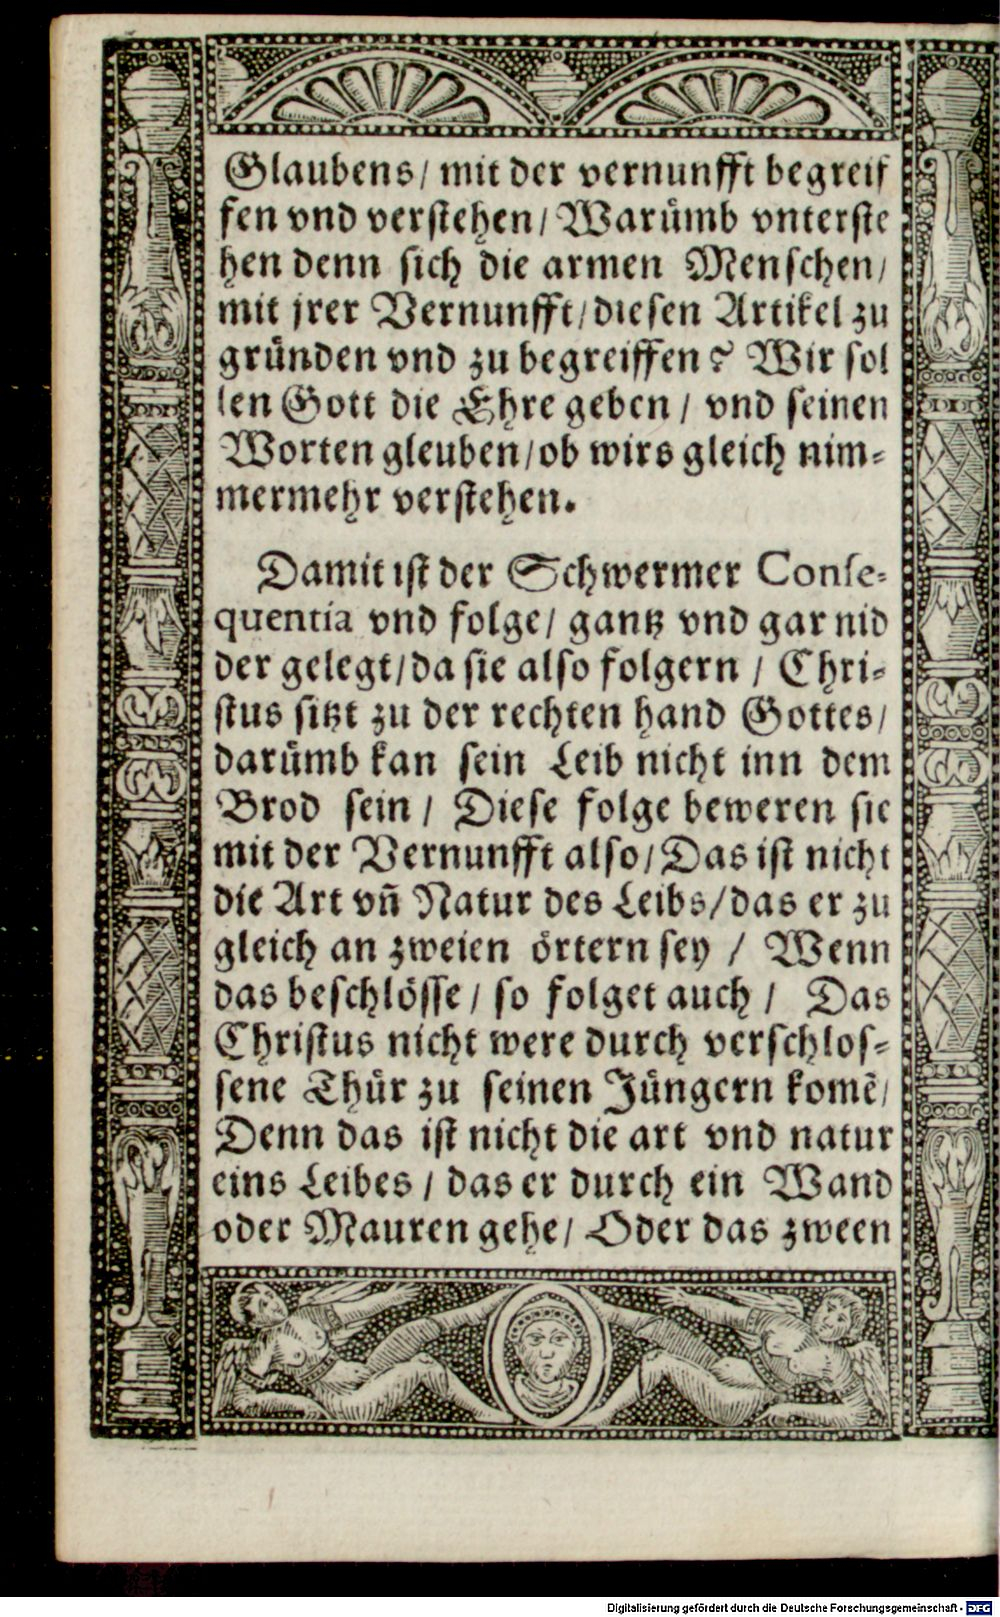 Glaubens/ mit der vernunfft begreif
fen vnd verstehen/ Warümb vnterste
hen denn sich die armen Menschen/
mit jrer Vernunfft/ diesen Artikel zu
gründen vnd zu begreiffen? Wir sol
len Gott die Ehre geben/ vnd seinen
Worten gleuben/ ob wirs gleich nim-
mermehr verstehen.
Damit ist der Schwermer Conse-
quentia vnd folge/ gantz vnd gar nid
der gelegt/ da sie also folgern/ Chri-
stus sitzt zu der rechten hand Gottes/
darümb kan sein Leib nicht inn dem
Brod sein/ Diese folge beweren sie
mit der Vernunfft also/ Das ist nicht
die Art vñ Natur des Leibs/ das er zu
gleich an zweien örtern sey/ Wenn
das beschlösse/ so folget auch/ Das
Christus nicht were durch verschlos-
sene Thür zu seinen Jüngern komẽ/
Denn das ist nicht die art vnd natur
eins Leibes/ das er durch ein Wand
oder Mauren gehe/ Oder das zween
Digitalisierung gefördert durch die Deutsche Forschungsgemeinschaft - DFG